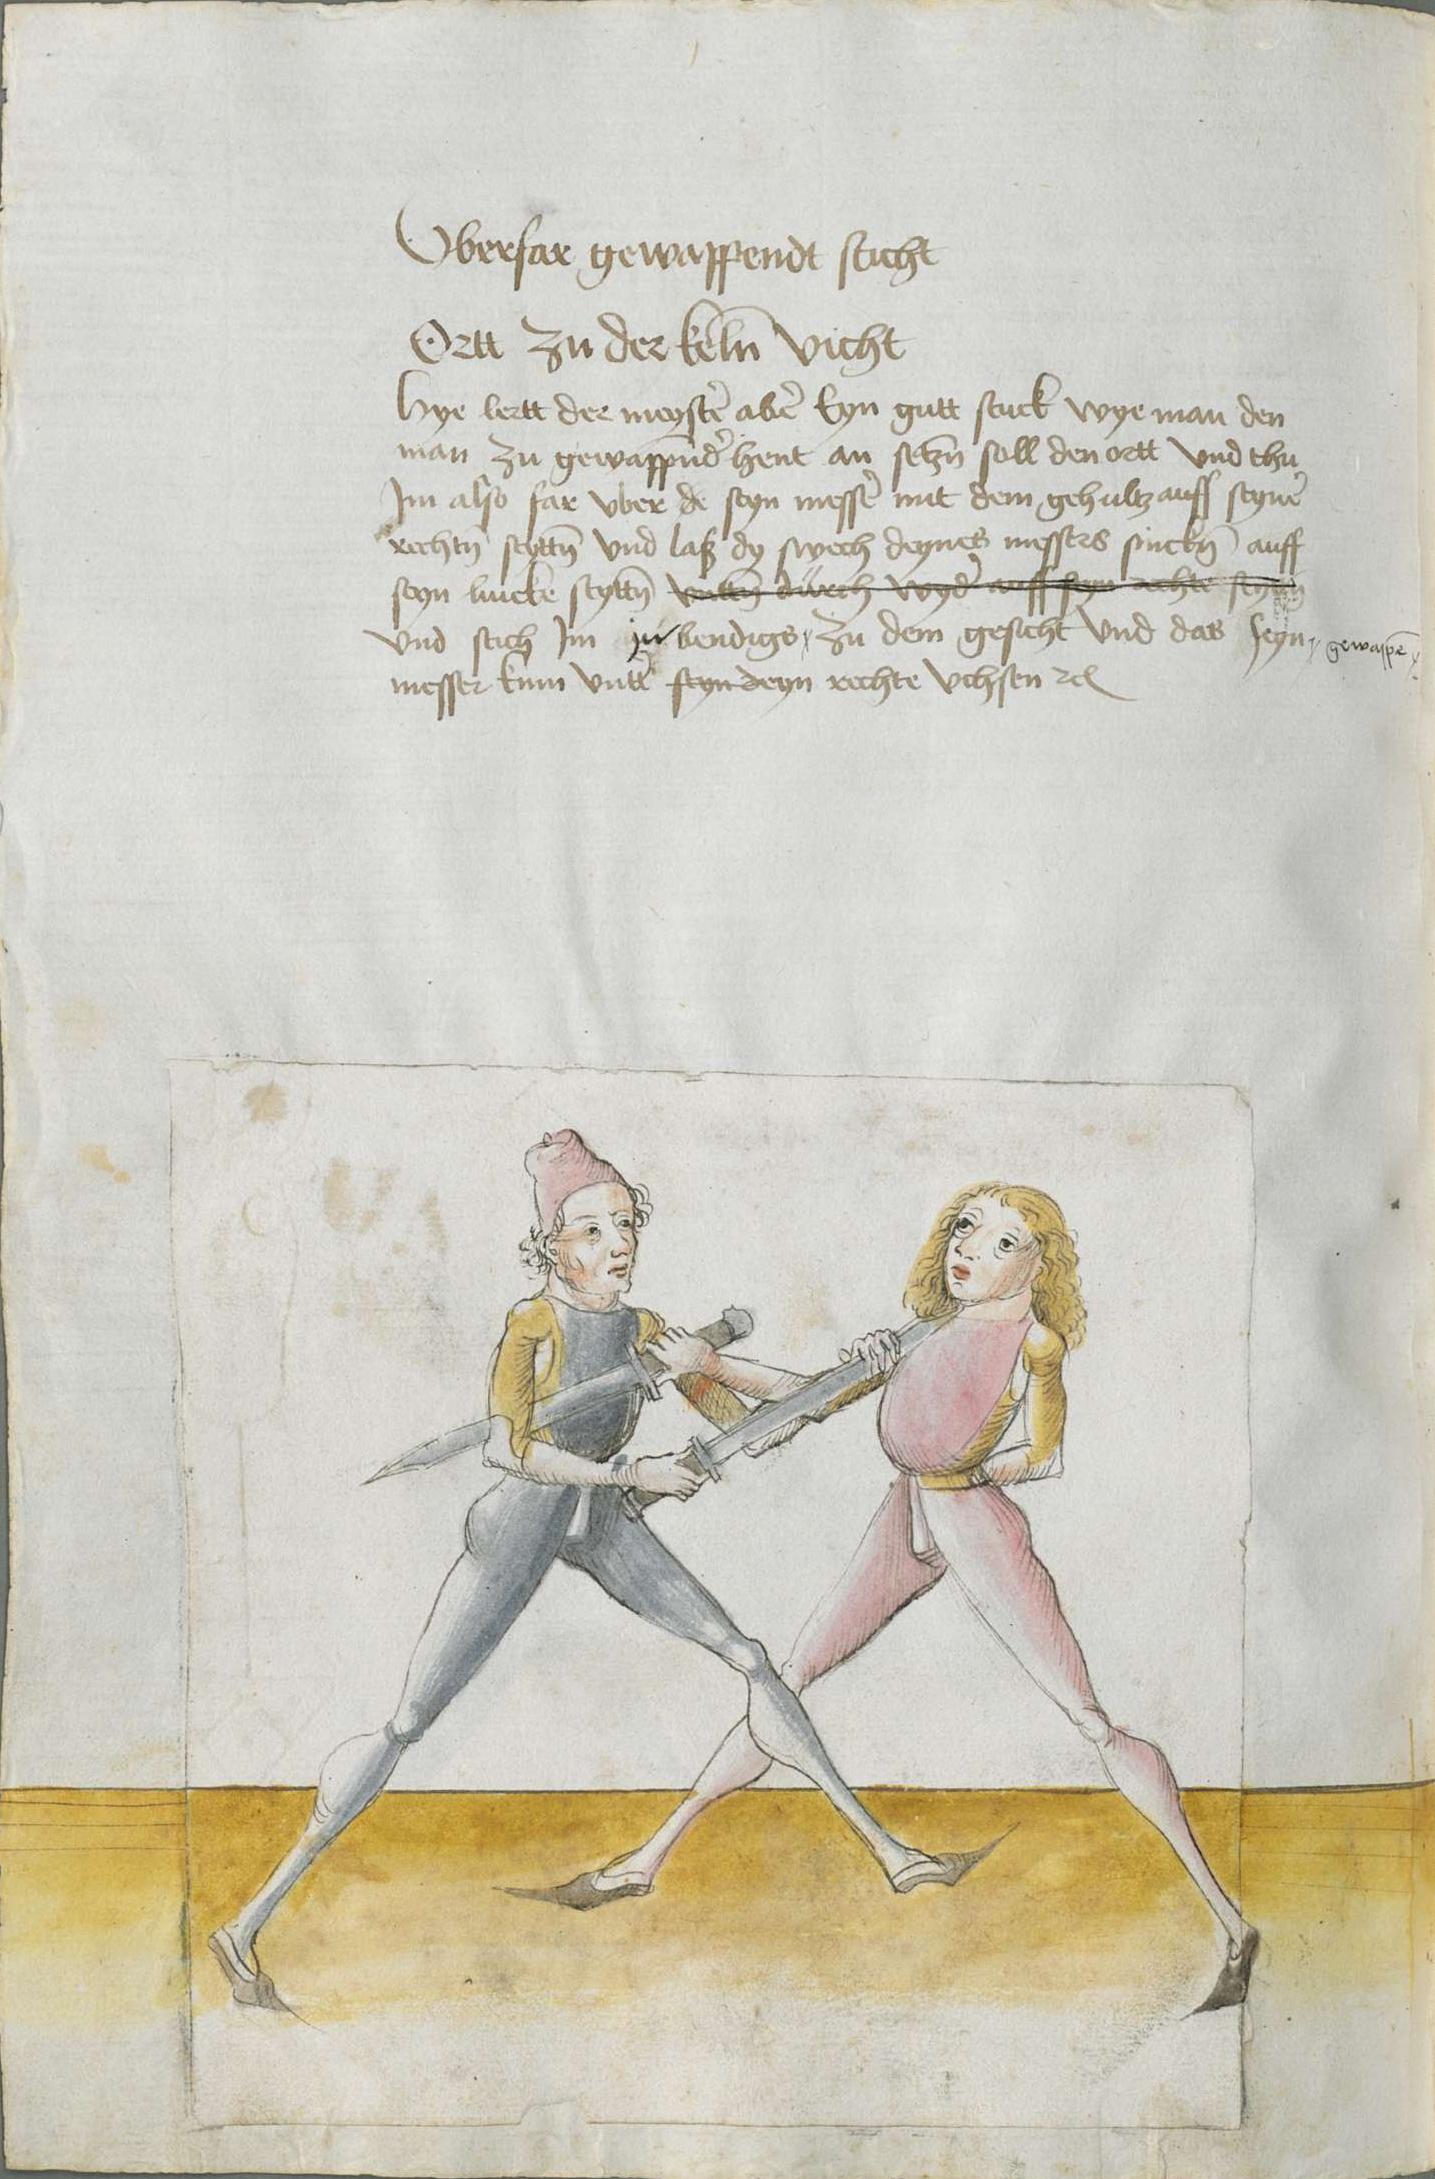 Vberfar gewappendt sticht
Ortt zu der keln̄ vicht
Hye lertt der meyster̄ aber̄ Eyn gutt stuck wye man den
man zu gewappnd̄er hent an seczn̄ soll den ortt vnd thu
Im also far vber de seyn messer̄ mit dem gehulcz auff seyner̄
rechtn̄ seyttn̄ vnd laß dy swech deynes messers sinckn̄ auff
seyn lincke seyttn̄ vnttn̄ durch wyder̄ auff seyn rechte seyttn̄
vnd stich Im in bendigs zu dem gesicht vnd das seyn gewappe͠
messer kum vntter̄ seyn deyn rechte vchsen ⁊c